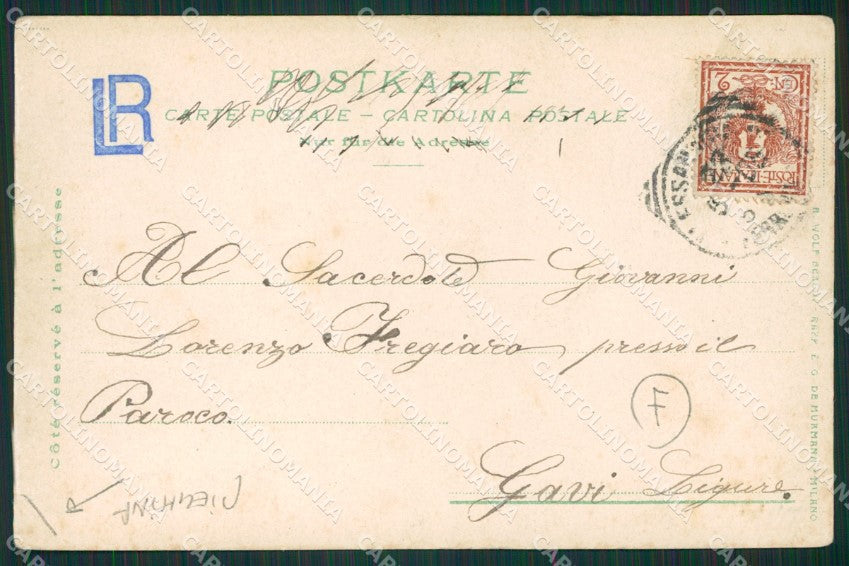 LR
POSTKARTE
CARTE POSTALE – CARTOLINA POSTALE
Nur für die Adresse
CENT 2
POSTE ITALIANE
Côté réservé à l'adresse
Al Sacerdote Giovanni
Lorenzo Fregiaro presso il
Paroco.
Gavi Ligure.
F
R
E. G. DE MURMANN - MILANO
CARTOLINOMANIA